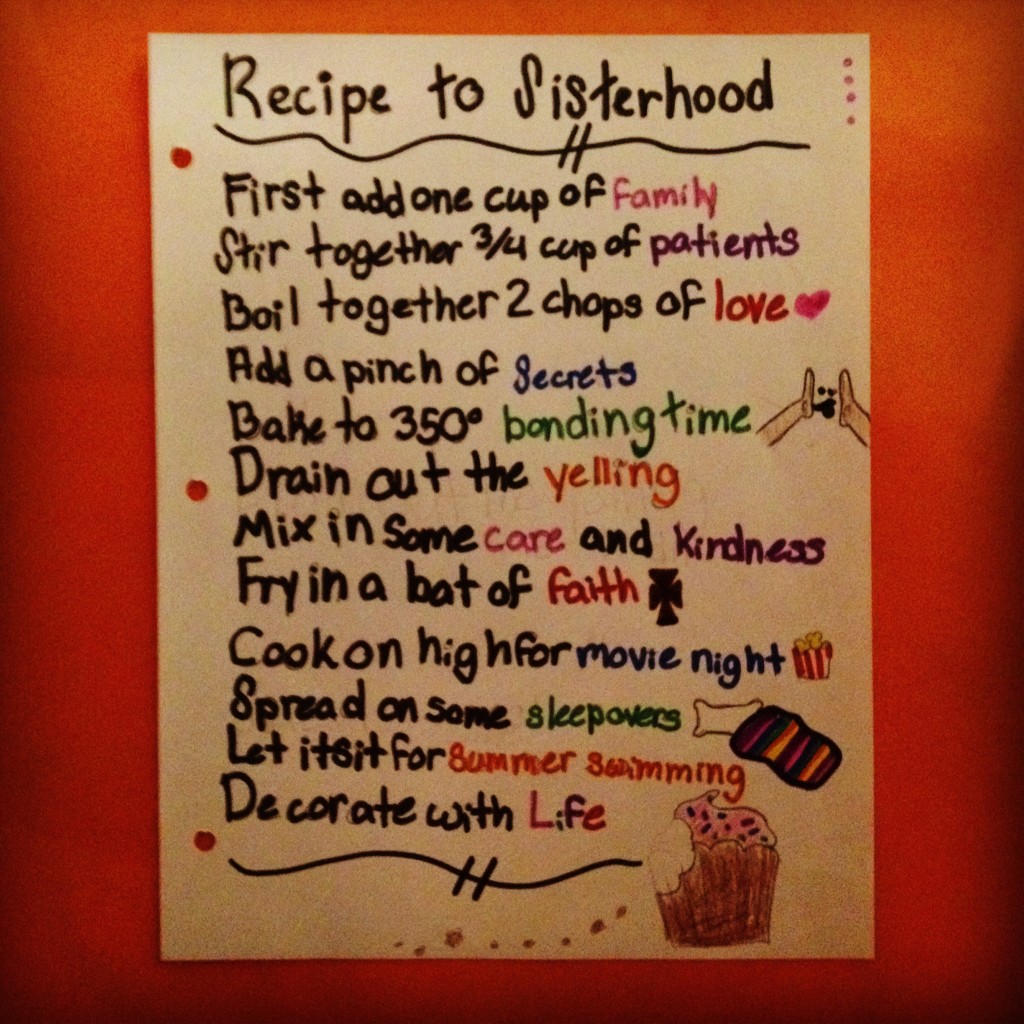 Recipe to Sisterhood
First add one cup of family
Stir together 3/4 cup of patients
Boil together 2 chops of love
Add a pinch of Secrets
Bake to 350° bonding time
Drain out the yelling
Mix in Some care and Kindness
Fry in a bat of faith
Cook on high for movie night
Spread on some sleepovers
Let it sit for Summer swimming
Decorate with Life